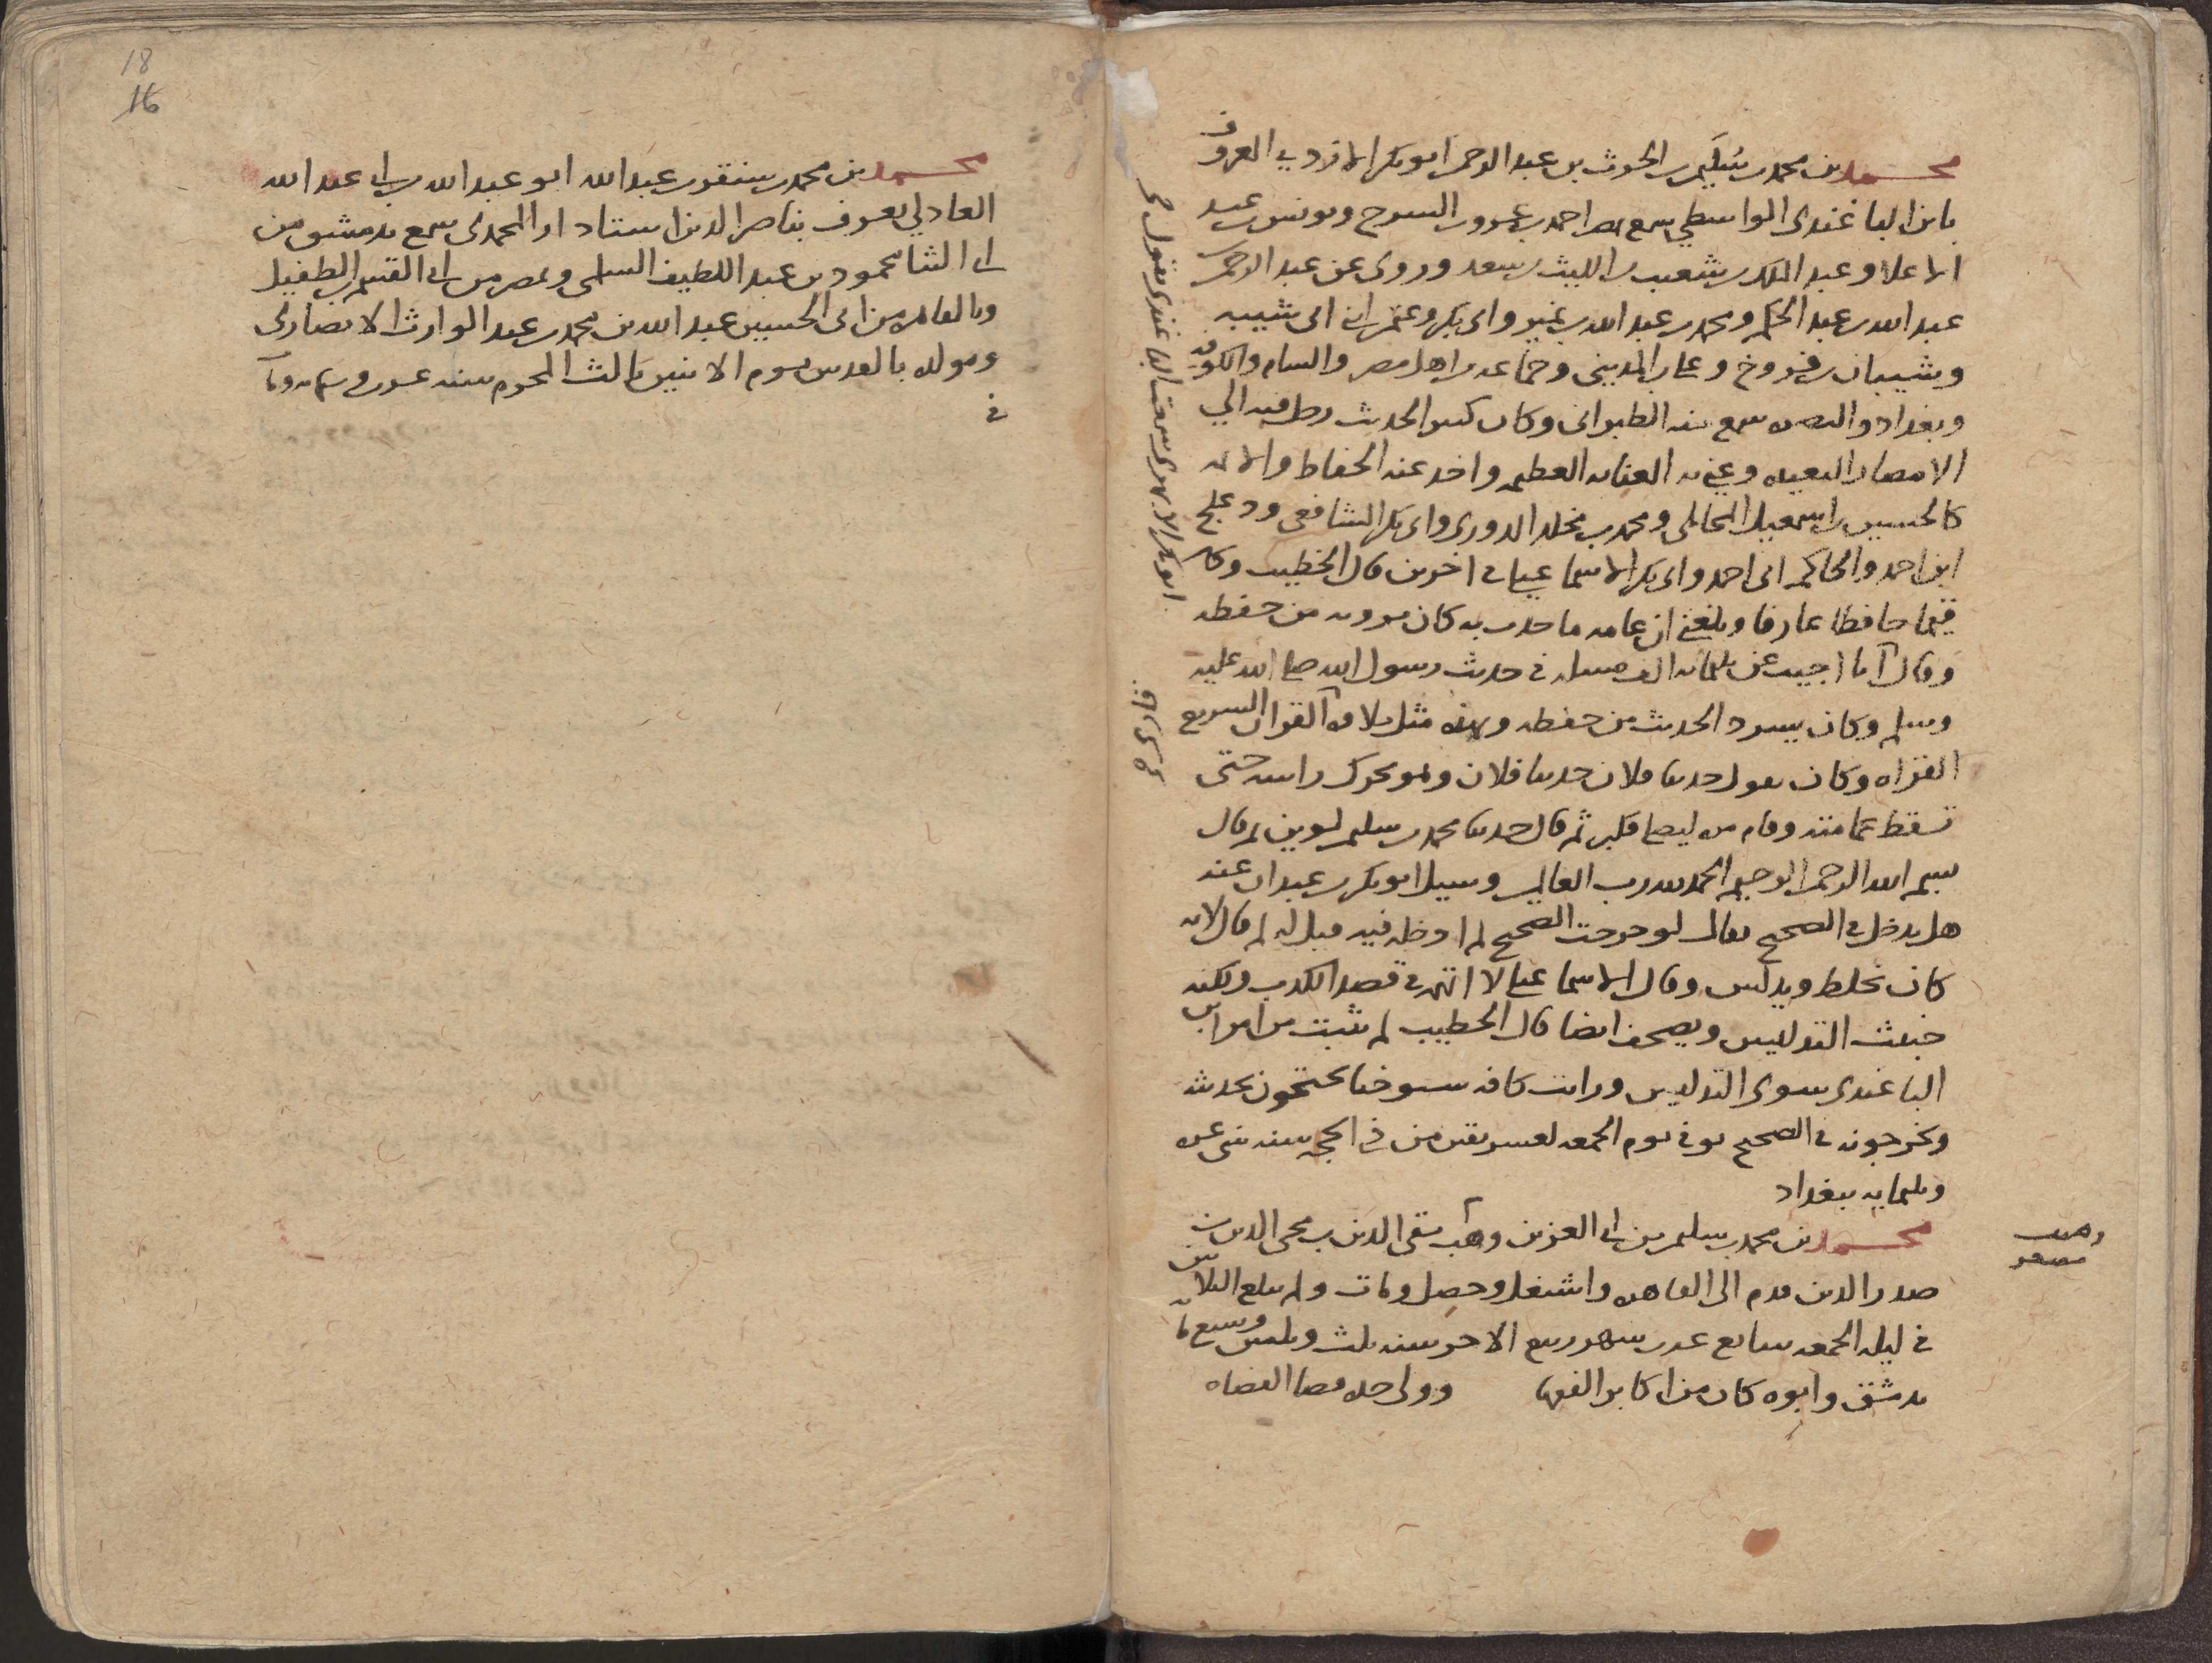 محمد بن محمد بن سليمن بن الحرث بن عبد الرحمن ابو بكر الازدي المعروف
بابن الباغندي الواسطي سمع بمصر احمد بن عمرو بن السرح ويونس بن عبد
الاعلا وعبد الملك بن شعيب بن الليث بن سعد وروى عن عبد الرحمن بن
عبد الله بن عبد الحكم ومحمد بن عبد الله بن نمير وابي بكر وعثمن ابني ابي شيبه
وشيبان بن فروخ وعلي بن المديني وجماعه من اهل مصر والشام والكوفه
وبغداد والبصره سمع منه الطبراني وكان كثير الحديث رحل فيه الي
الامصار البعيده وعني به العنايه العظيمه واخذ عنه الحفاظ والائمه
كالحسين بن اسمعيل المحاملي ومحمد بن مخلد الدوري وابي بكر الشافعي ودعلج
ابن احمد والحاكم ابي احمد وابي بكر الاسماعيلي في اخرين قال الخطيب وكان
فهما حافظا عارفا وبلغني ان عامه ما حدث به كان يرويه من حفظه
وقال انا اجيب عن ثلثمائه الف مسئله في حديث رسول الله صلى الله عليه
وسلم وكان يسرد الحديث من حفظه ويهذه مثل تلاوه القران السريع
القراه وكان يقول حدثنا فلان حدثنا فلان وهو يحرك راسه حتى
تسقط عمامته وقام مره ليصلي فكبر ثم قال حدثنا محمد بن سليمن لوين ثم قال
بسم الله الرحمن الرحيم الحمد لله رب العالمين وسيل ابو بكر بن عبدان عنه
هل يدخل في الصحيح فقال لو خرجت الصحيح لم ادخله فيه قيل له لم قال لانه
كان يخلط ويدلس وقال الاسماعيلي لا اتهمه في قصد الكذب ولكنه
خبيث التدليس ويصحف ايضا قال الخطيب لم يثبت من امر ابن
الباغندي سوى التدليس ورايت كافه شيوخنا يحتجون بحديثه
ويخرجونه في الصحيح توفي يوم الجمعه لعشر بقين من ذي الحجه سنه ثنتي عشره
وثلثمايه ببغداد
محمد بن محمد بن سليمن بن ابي العز بن وهيب تقي الدين بن محي الدين بن
صدر الدين قدم الى القاهره واشتغل وحصل ومات ولم يبلغ الثلاثين
في ليله الجمعه سابع عشر شهر ربيع الاخر سنه ثلث وثلثين وسبع مايه
بدمشق وابوه كان من اكابر الفقها وولى جده قضا القضاه
وهيب
مصغر
ابو بكر الابهري سمعت الباغندي يقول
18
16
محمد بن محمد بن سنقر بن عبد الله ابو عبد الله بن ابي عبد الله
العادلي يعرف بناصر الدين استاد دار المحمدي سمع بدمشق من
ابي الثنا محمود بن عبد اللطيف السلمي وبمصر من ابي القسم بن الطفيل
وبالقاهره من ابي الحسين عبد الله بن محمد بن عبد الوارث الانصاري
ومولده بالقدس يوم الاثنين ثالث المحرم سنه عشرين وستمايه ومات
في